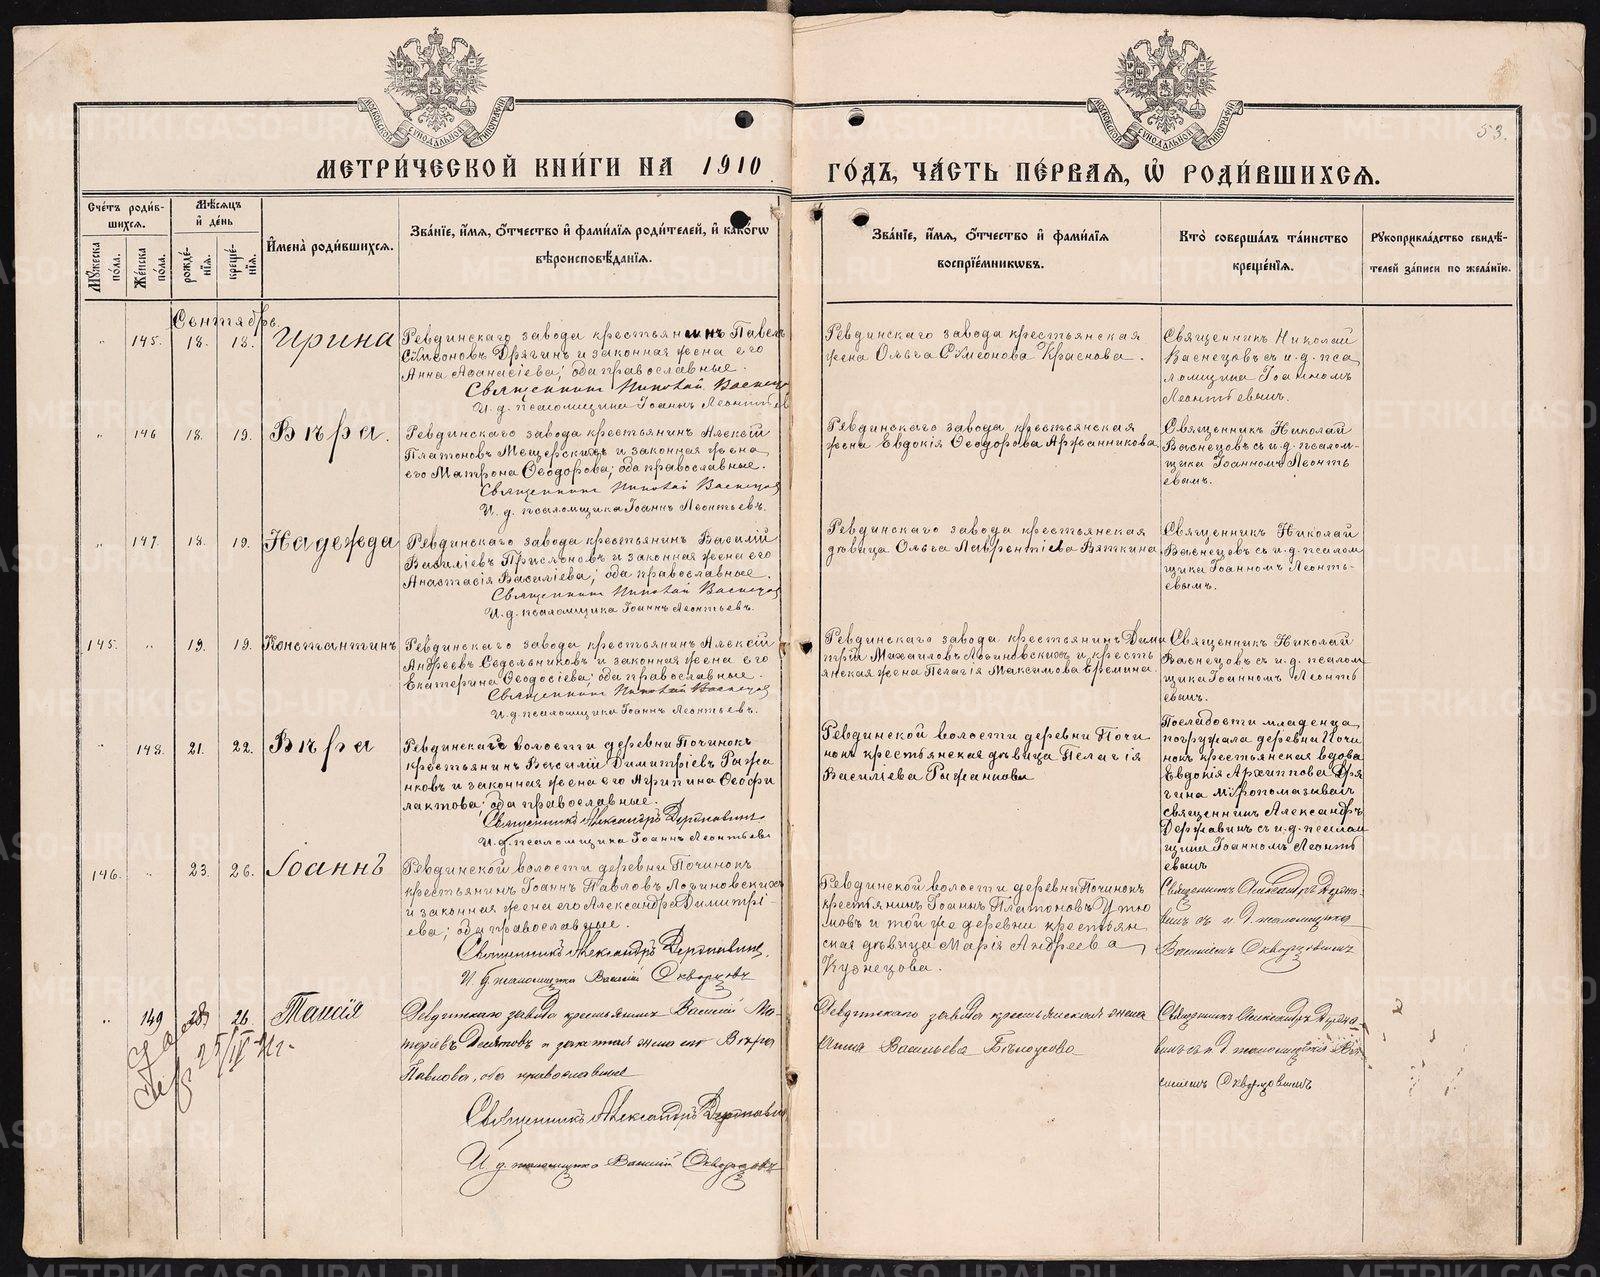 МОСКОВСКОЙ СѴНОДАЛЬНОЙ ТИПОГРАФІИ
МОСКОВСКОЙ СѴНОДАЛЬНОЙ ТИПОГРАФІИ
53.
МЕТРИ́ЧЕСКОЙ КНИ́ГИ НА 1910
ГО́ДЪ, ЧА́СТЬ ПЕ́РВАѦ, Ѡ҆ РОДИ́ВШИХСѦ.
Сче́тъ роди́в-
шихсѧ.
Мꙋ́жеска по́ла.
Же́нска по́ла.
Мѣ́сѧцъ
и҆ де́нь
рожде́-
нїѧ.
креще́-
нїѧ.
И҆мена̀ роди́вшихсѧ.
Зва́нїе, и҆́мѧ, ѻ҆́тчество и҆ фамѝлїѧ роди́телей, и҆ како́гѡ
вѣроисповѣ́данїѧ.
Зва́нїе, и҆́мѧ, ѻ҆́тчество и҆ фамѝлїѧ
воспрїе́мникѡвъ.
Кто̀ соверша́лъ та́инство
креще́нїѧ.
Рꙋкоприкла́дство свидѣ́-
телей за́писи по жела́нїю.
Сентябрь
" 145. 18. 18. Ирина
Ревдинскаго завода крестьянинъ Павелъ
Симеоновъ Дрягинъ и законная жена его
Анна Аѳанасіева; оба православные.
Священникъ Николай Васнецовъ
И. д. псаломщика Іоаннъ Леонтьев
Ревдинскаго завода крестьянская
жена Ольга Симеонова Краснова.
Священникъ Николай
Васнецовъ съ и. д. пса
ломщика Іоанномъ
Леонтьевымъ.
" 146 18. 19. Вѣра.
Ревдинскаго завода крестьянинъ Алексій
Платоновъ Мещерскихъ и законная жена
его Матрона Ѳеодорова; оба православные.
Священникъ Николай Васнецов
И. д. псаломщика Іоаннъ Леонтьевъ.
Ревдинскаго завода крестьянская
жена Евдокія Ѳеодорова Аржанникова
Священникъ Николай
Васнецовъ съ и. д. псалом-
щика Іоанномъ Леонть
евымъ.
" 147. 18. 19. Надежда
Ревдинскаго завода крестьянинъ Василій
Василіевъ и законная жена его
Анастасія Василіева; оба православные.
Священникъ Николай Васнецов
И. д. псаломщика Іоаннъ Леонтьевъ.
Ревдинскаго завода крестьянская
дѣвица Ольга Лаврентіева Вяткина
Священникъ Николай
Васнецовъ съ и. д. псалом
щика Іоанномъ Леонть-
евымъ.
145. " 19. 19. Константинъ
Ревдинскаго завода крестьянинъ Алексій
Андреевъ Седельниковъ и законная жена его
Екатерина Ѳеодосіева; оба православные.
Священникъ Николай Васнецов
И. д. псаломщика Іоаннъ Леонтьевъ.
Ревдинскаго завода крестьянинъ Дими
трій Михаиловъ Логиновскихъ и кресть
янская жена Пелагія Максимова Еремина.
Священникъ Николай
Васнецовъ съ и. д. псалом
щика Іоанномъ Леонть
евымъ.
" 148. 21. 22. Вѣра
Ревдинской волости деревни Починокъ
крестьянинъ Василій Димитріевъ Ража
нковъ и законная жена его Агрипина Ѳеофи
лактова оба православные.
Священникъ Александръ Державинъ
И. д. псаломщика Іоаннъ Леонтьевъ
Ревдинской волости деревни Почи
нокъ крестьянская дѣвица Пелагія
Васильева
По слабости младенца
погружала деревни Почи
нокъ крестьянская вдова
Евдокія Архиппова Дря
гина мѵропомазывалъ
священникъ Александръ
Державинъ съ и. д. псалом
щика Іоанномъ Леонть
евымъ
146. " 23. 26. Іоаннъ
Ревдинской волости деревни Починокъ
крестьянинъ Іоаннъ Павловъ Логиновскихъ
и законная жена его Александра Димитрі-
ева; оба православные.
Священникъ Александръ Державинъ.
И. д. псаломщика Василій Скворцовъ
Ревдинской волости деревни Починокъ
крестьянинъ Іоаннъ Платоновъ Утю
мовъ и той же деревни крестьян
ская дѣвица Марія Андреева
Кузнецова.
Священникъ Александръ Держа-
винъ съ и. д. псаломщика
Василіемъ Скворцовымъ
" 149 28 26. Таисія
25/IV
Ревдинскаго завода крестьянинъ Василій
Десятовъ и законная жена его Вѣра
Павлова, оба православные
Священникъ Александръ Державин
И. д. псаломщика Василій Скворцовъ
Ревдинскаго завода крестьянская жена
Анна Васильева Бѣлоусова
Священникъ Александръ Держа-
винъ съ и. д. псаломщика Ва-
силіемъ Скворцовымъ
METRIKI.GASO-URAL.RU